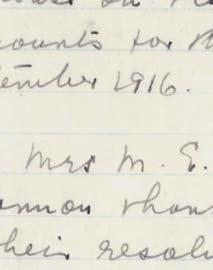 ounts for th
tember 1916.
Mrs M. E.
annon than
their resolu